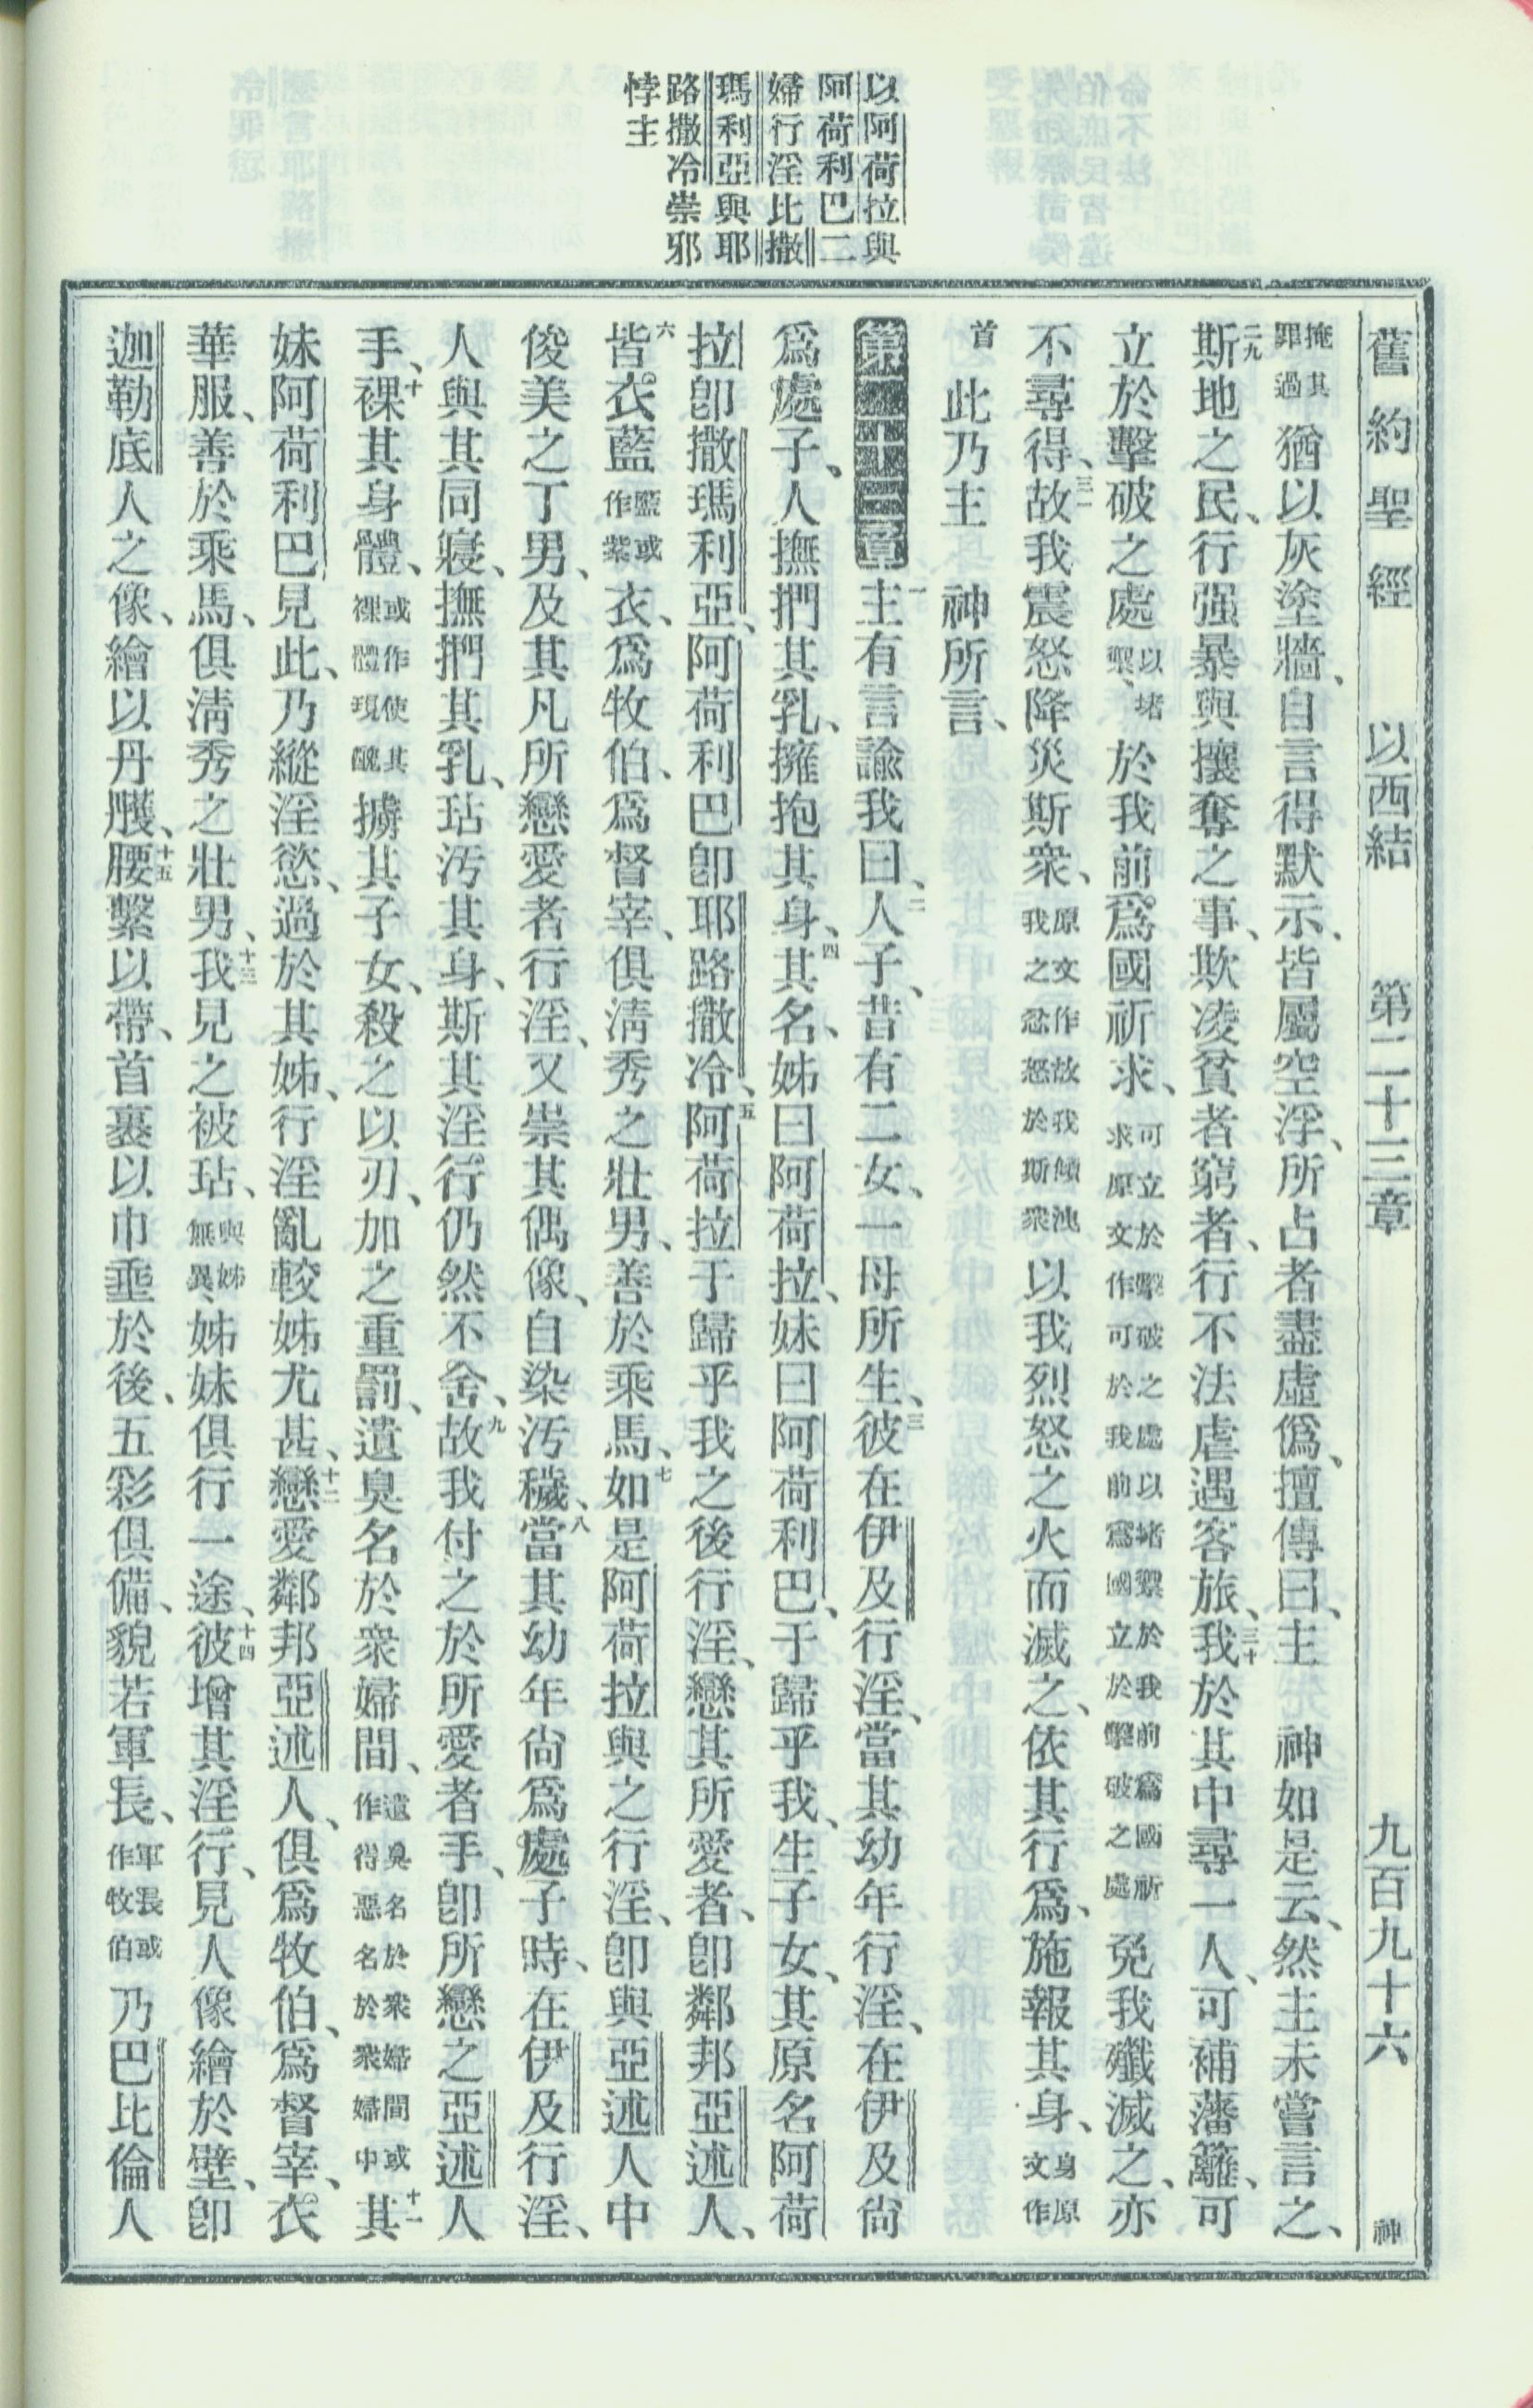 舊約聖經 以西結 第二十三章 九百九十六 神
以阿荷拉與
阿荷利巴二
婦行淫比撒
瑪利亞與耶
路撒冷崇邪
悖主
掩其罪過猶以灰塗牆、自言得默示、皆屬空浮、所占者盡虛僞、擅傳曰、主 神如是云、然主未嘗言之、
二九斯地之民、行强暴與攘奪之事、欺凌貧者窮者、行不法虐遇客旅、三十我於其中尋一人、可補藩籬、可
立於擊破之處以堵禦、於我前、爲國祈求、可立於擊破之處以堵禦於我前爲國祈求原文作可於我前爲國立於擊破之處免我殲滅之、亦
不尋得、三一故我震怒降災斯衆、原文作故我傾洩我之忿怒於斯衆以我烈怒之火而滅之、依其行爲、施報其身、身原文作
首 此乃主 神所言、
第二十三章 一主有言諭我曰、二人子、昔有二女、一母所生、三彼在伊及行淫、當其幼年行淫、在伊及尙
爲處子、人撫捫其乳、擁抱其身、四其名、姊曰阿荷拉、妹曰阿荷利巴、于歸乎我、生子女、其原名阿荷
拉卽撒瑪利亞、阿荷利巴卽耶路撒冷、五阿荷拉于歸乎我之後行淫、戀其所愛者、卽鄰邦亞述人、
六皆衣藍藍或作紫衣、爲牧伯、爲督宰、俱淸秀之壯男、善於乘馬、七如是阿荷拉與之行淫、卽與亞述人中
俊美之丁男、及其凡所戀愛者行淫、又崇其偶像、自染汚穢、八當其幼年尙爲處子時、在伊及行淫、
人與其同寢、撫捫其乳、玷汚其身、斯其淫行、仍然不舍、九故我付之於所愛者手、卽所戀之亞述人
手、十裸其身體、或作使其裸體現醜擄其子女、殺之以刃、加之重罰、遺臭名於衆婦間、遺臭名於衆婦間或作得惡名於衆婦中十一其
妹阿荷利巴見此、乃縱淫慾、過於其姊、行淫亂較姊尤甚、十二戀愛鄰邦亞述人、俱爲牧伯、爲督宰、衣
華服、善於乘馬、俱淸秀之壯男、十三我見之被玷、與姊無異、姊妹俱行一途、十四彼增其淫行、見人像繪於壁、卽
迦勒底人之像、繪以丹雘、十五腰繫以帶、首裹以巾垂於後、五彩俱備、貌若軍長、軍長或作牧伯乃巴比倫人